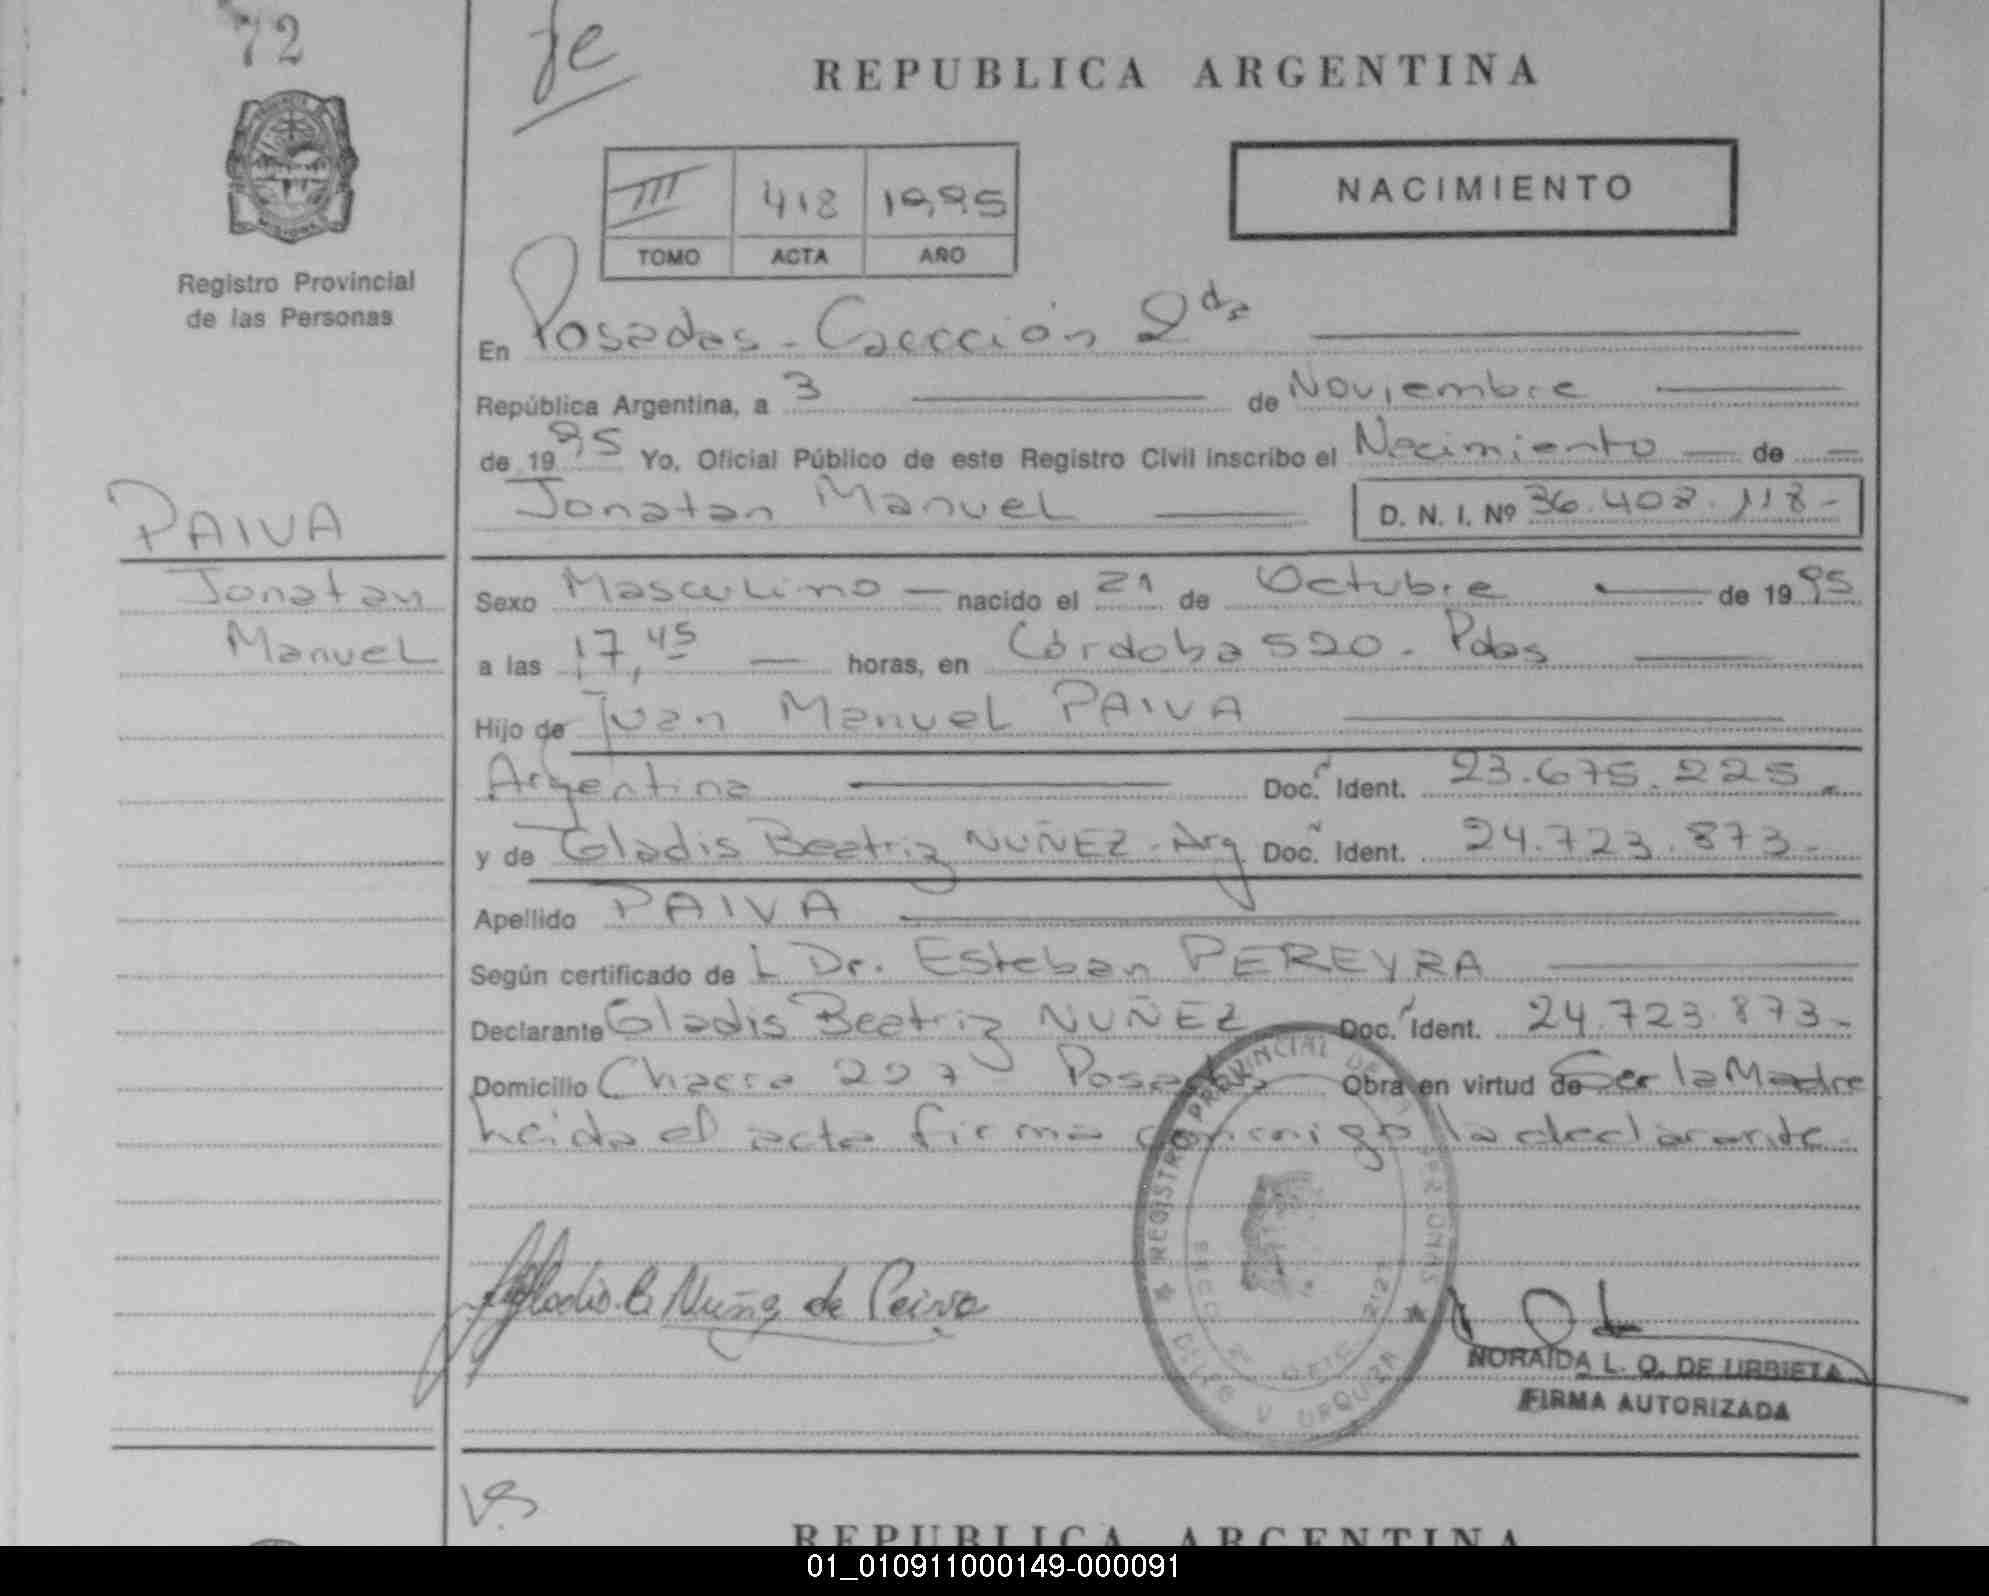 72
REPUBLICA ARGENTINA
NACIMIENTO
III 418 1995
TOMO ACTA AÑO
Registro Provincial
de las Personas
En Posadas - Sección 2da
República Argentina, a 3 de Noviembre
de 1995 Yo, Oficial Público de este Registro Civil inscribo el Nacimiento de
Jonatan Manuel D. N. I. Nº 36.408.118-
PAIVA
Jonatan
Manuel
Sexo Masculino nacido el 21 de Octubre de 1995
a las 17,45 horas, en Córdoba 520. Pdas
Hijo de Juan Manuel PAIVA
Argentina Doc. Ident. 23.675.225.
y de Gladis Beatriz NUÑEZ - Arg Doc. Ident. 24.723.873-
Apellido PAIVA
Según certificado de L Dr. Esteban PEREYRA
Declarante Gladis Beatriz NUÑEZ Doc. Ident. 24.723.873-
Domicilio Chacra 207 Posadas Obra en virtud de Ser la Madre
Leida el acta firma conmigo la declarante
REGISTRO PROVINCIAL DE PERSONAS
URQUIZA
Gladis B Nuñez de Paiva
NORAIDA L. O. DE URRIETA
FIRMA AUTORIZADA
REPUBLICA ARGENTINA
01_010911000149-000091